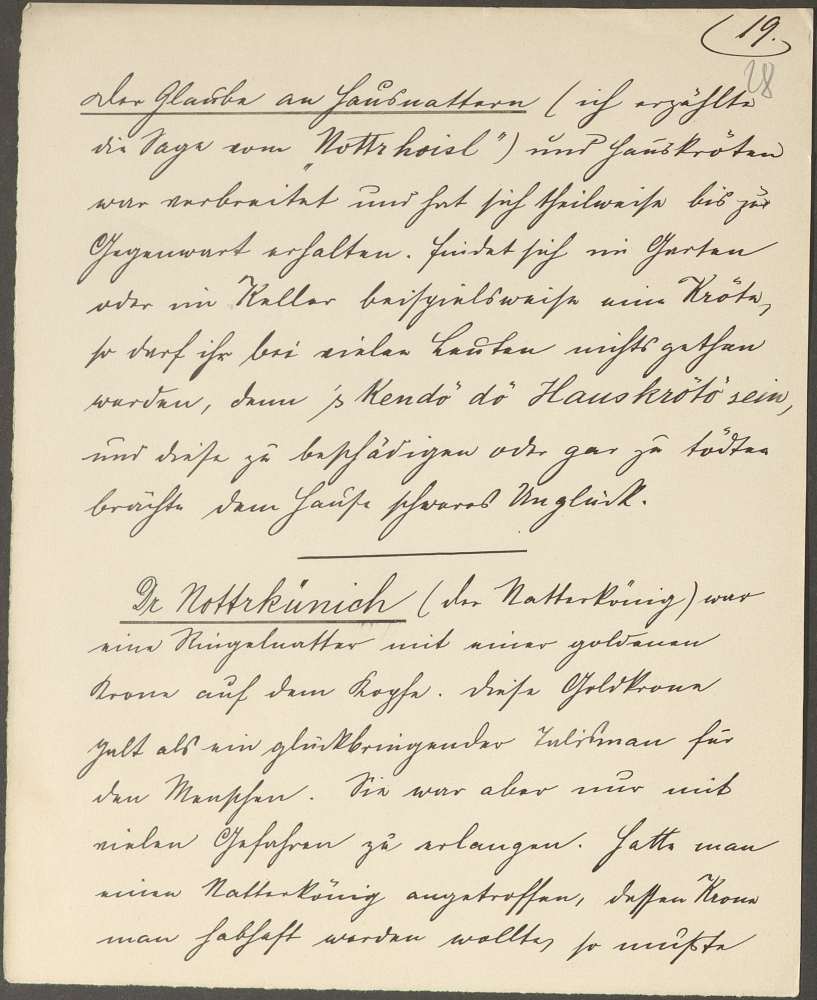 19.
28
Der Glaube an Hausnattern (ich erzählte
die Sage vom "Nottrhoisl") und Hauskröten
war verbreitet und hat sich theilweise bis zur
Gegenwart erhalten. Findet sich im Garten
oder im Keller beispielsweise eine Kröte,
so darf ihr bei vielen Leuten nichts gethan
werden, denn 's Kendö dö Hauskrötö sein,
und diese zu beschädigen oder gar zu tödten
brächte dem Hause schweres Unglück.
Dr Nottrkünich (der Natterkönig) war
eine Ringelnatter mit einer goldenen
Krone auf dem Kopfe. Diese Goldkrone
galt als ein glückbringender Talisman für
den Menschen. Sie war aber nur mit
vielen Gefahren zu erlangen. Hatte man
einen Natterkönig angetroffen, dessen Krone
man habhaft werden wollte, so mußte